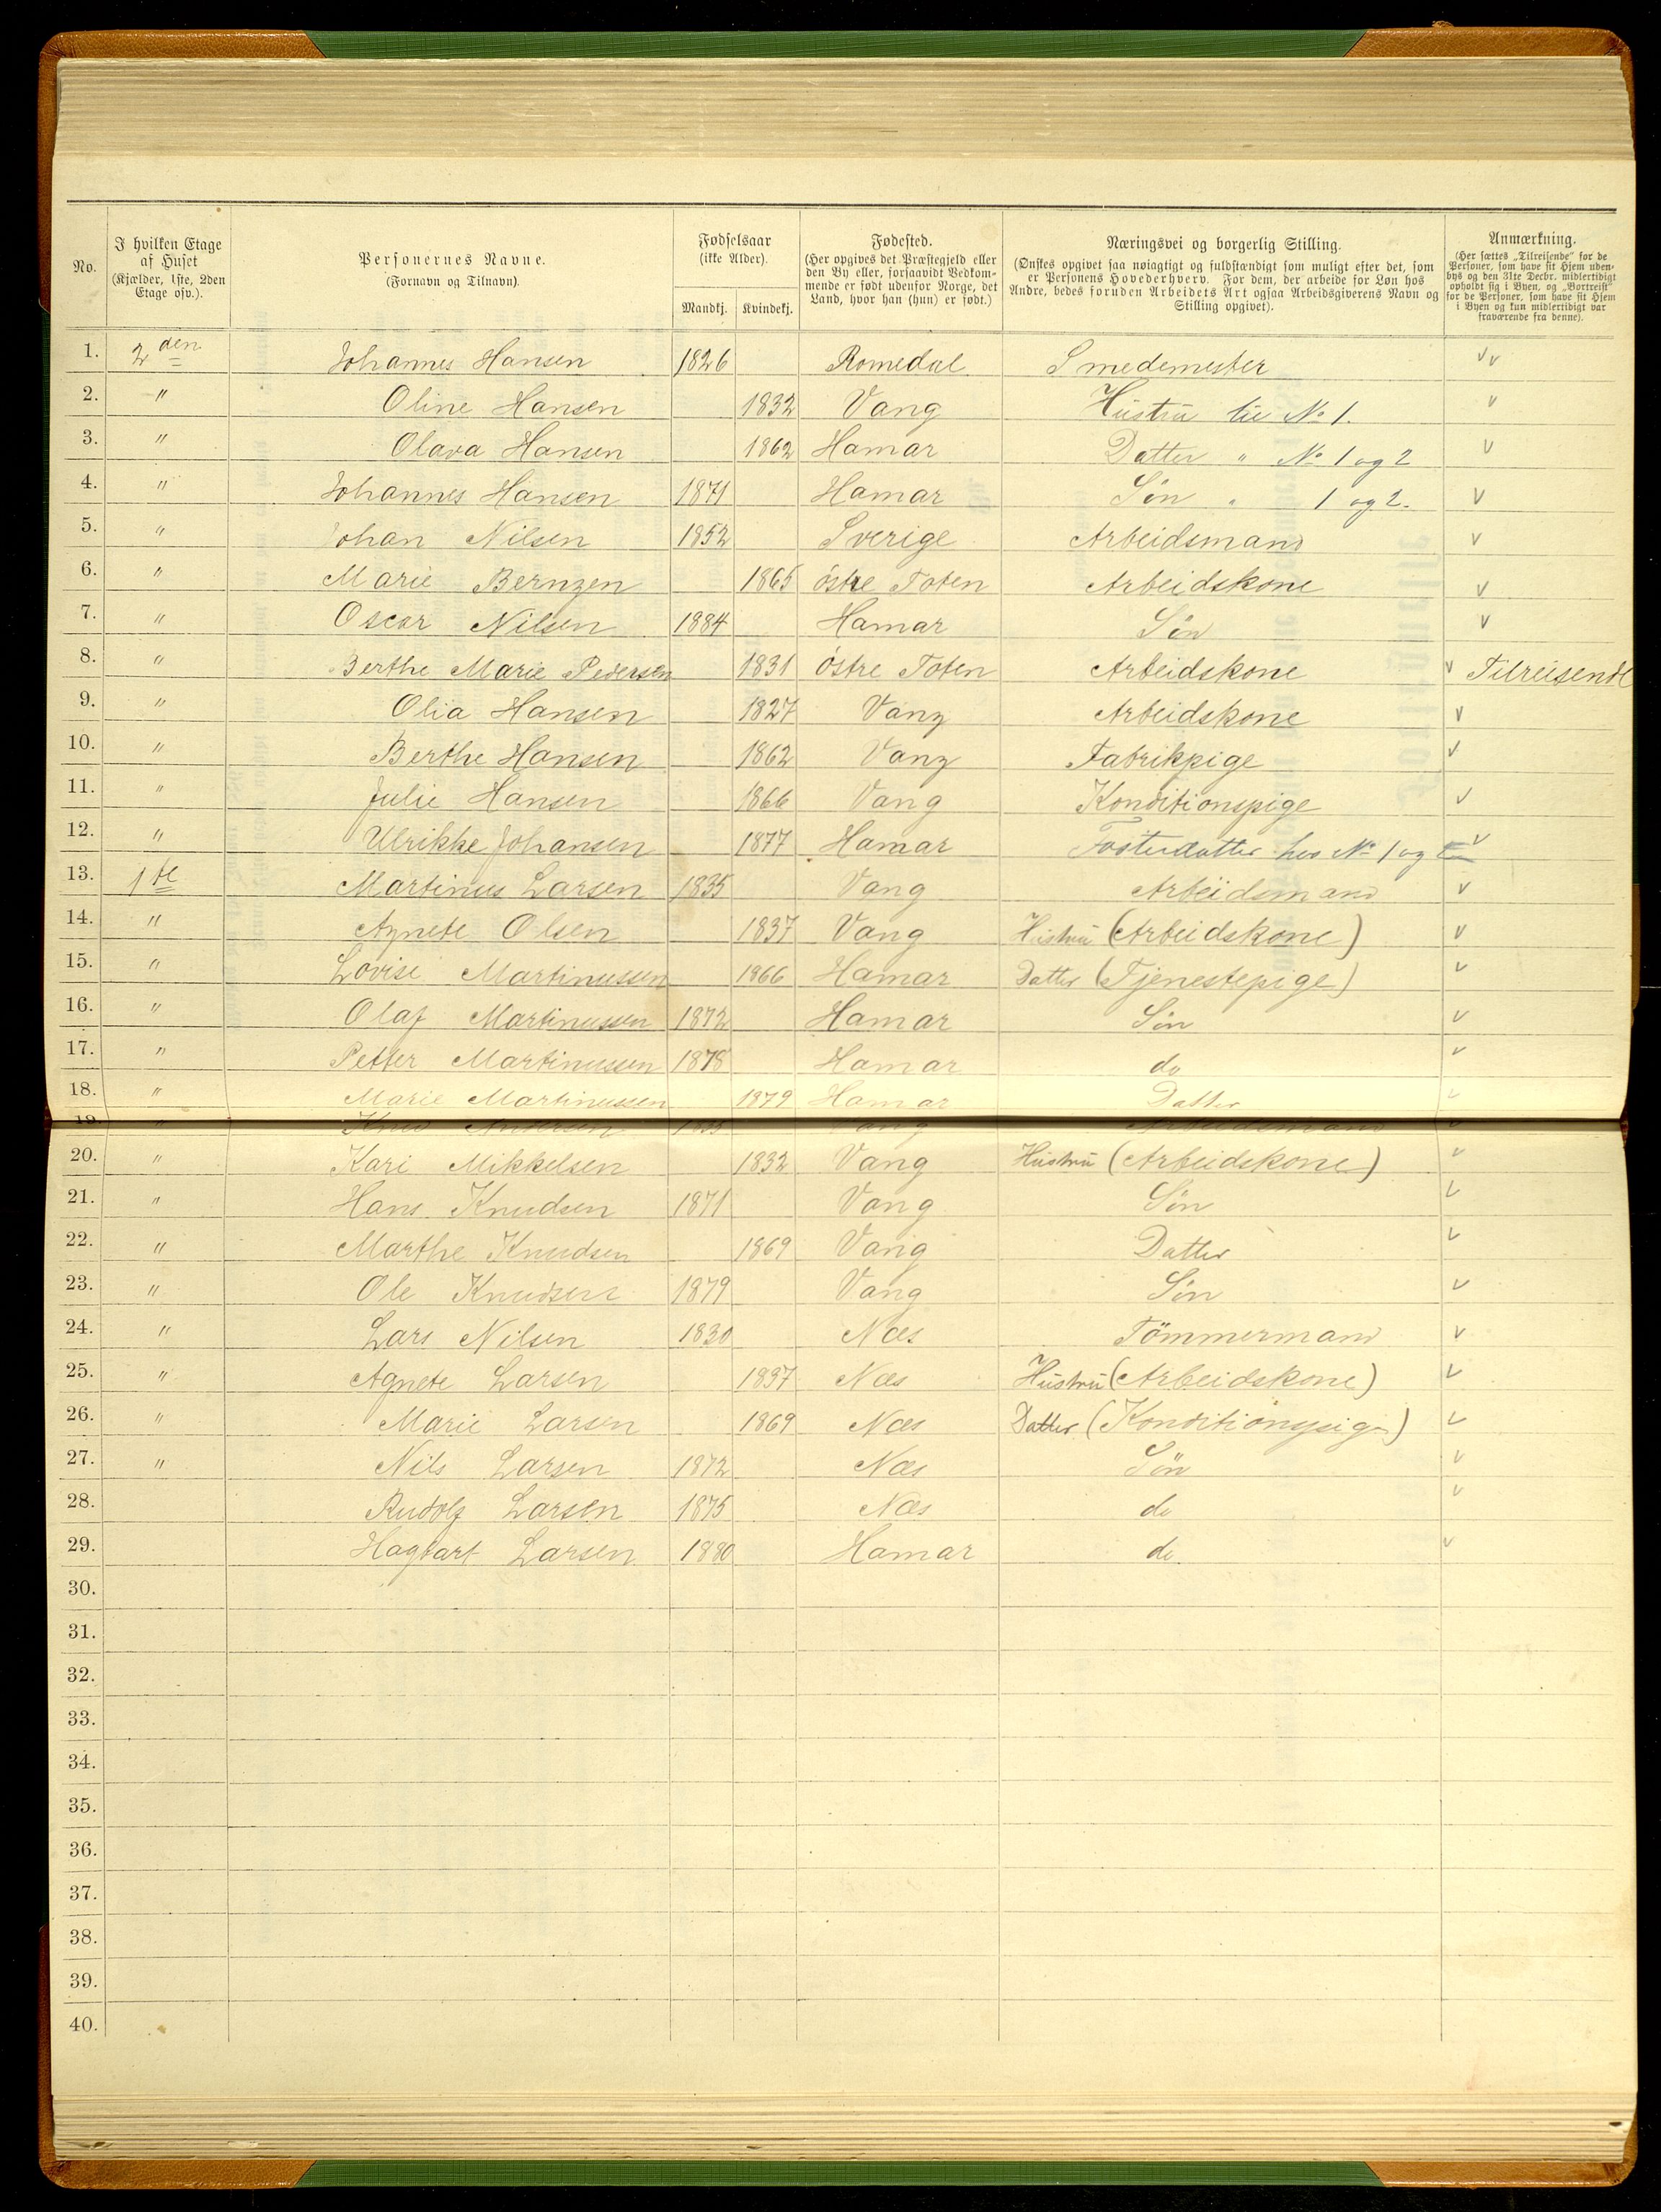 No. | I hvilken Etage af Huset (Kjælder, 1ste, 2den Etage osv.). | Personernes Navne. (Fornavn og Tilnavn). | Fødselsaar (ikke Alder). Mandkj. | Kvindekj. | Fødested. (Her opgives det Præstegjeld eller den By eller, forsaavidt Vedkommende er født udenfor Norge, det Land, hvor han (hun) er født.) | Næringsvei og borgerlig Stilling. (Ønskes opgivet saa nøiagtigt og fuldstændigt som muligt efter det, som er Personens Hovederhverv. For dem, der arbeide for Løn hos Andre, bedes foruden Arbeidets Art ogsaa Arbeidsgiverens Navn og Stilling opgivet). | Anmærkning. (Her sættes „Tilreisende" for de Personer, som have sit Hjem udenbys og den 31te Decbr. midlertidigt opholdt sig i Byen, og „Bortreist" for de Personer, som have sit Hjem i Byen og kun midlertidigt var fraværende fra denne).
1. 2den Johannes Hansen 1826 Romedal Smedemester v v
2. " Oline Hansen 1832 Vang Hustru til No 1. v
3. " Olava Hansen 1862 Hamar Datter " No 1 og 2 v
4. " Johannes Hansen 1871 Hamar Søn " 1 og 2. v
5. " Johan Nilsen 1852 Sverige Arbeidsmand v
6. " Marie Bernzen 1865 östre Toten Arbeidskone v
7. " Oscar Nilsen 1884 Hamar Søn v
8. " Berthe Marie Pedersen 1831 östre Toten Arbeidskone v Tilreisende
9. " Olia Hansen 1827 Vang Arbeidskone v
10. " Berthe Hansen 1862 Vang Fabrikpige v
11. " Julie Hansen 1866 Vang Konditionspige v
12. " Ulrikke Johansen 1877 Hamar Fosterdatter hos No 1 og v
13. 1te Martinus Larsen 1835 Vang Arbeidsmand v
14. " Agnete Olsen 1837 Vang Hustru (Arbeidskone) v
15. " Lovise Martinussen 1866 Hamar Datter (Tjenestepige) v
16. " Olaf Martinussen 1872 Hamar Søn v
17. " Petter Martinussen 1878 Hamar do v
18. " Marie Martinussen 1879 Hamar Datter v
19. " Knud Andersen Vang Arbeidsmand v
20. " Kari Mikkelsen 1832 Vang Hustru (Arbeidskone) v
21. " Hans Knudsen 1871 Vang Søn v
22. " Marthe Knudsen 1869 Vang Datter v
23. " Ole Knudsen 1879 Vang Søn v
24. " Lars Nilsen 1830 Næs Tömmermand v
25. " Agnete Larsen 1837 Næs Hustru (Arbeidskone) v
26. " Marie Larsen 1869 Næs Datter (Konditionspige) v
27. " Nils Larsen 1872 Næs Søn v
28. Rudolf Larsen 1875 Næs do v
29. Hagbart Larsen 1880 Hamar do. v
30.
31.
32.
33.
34.
35.
36.
37.
38.
39.
40.